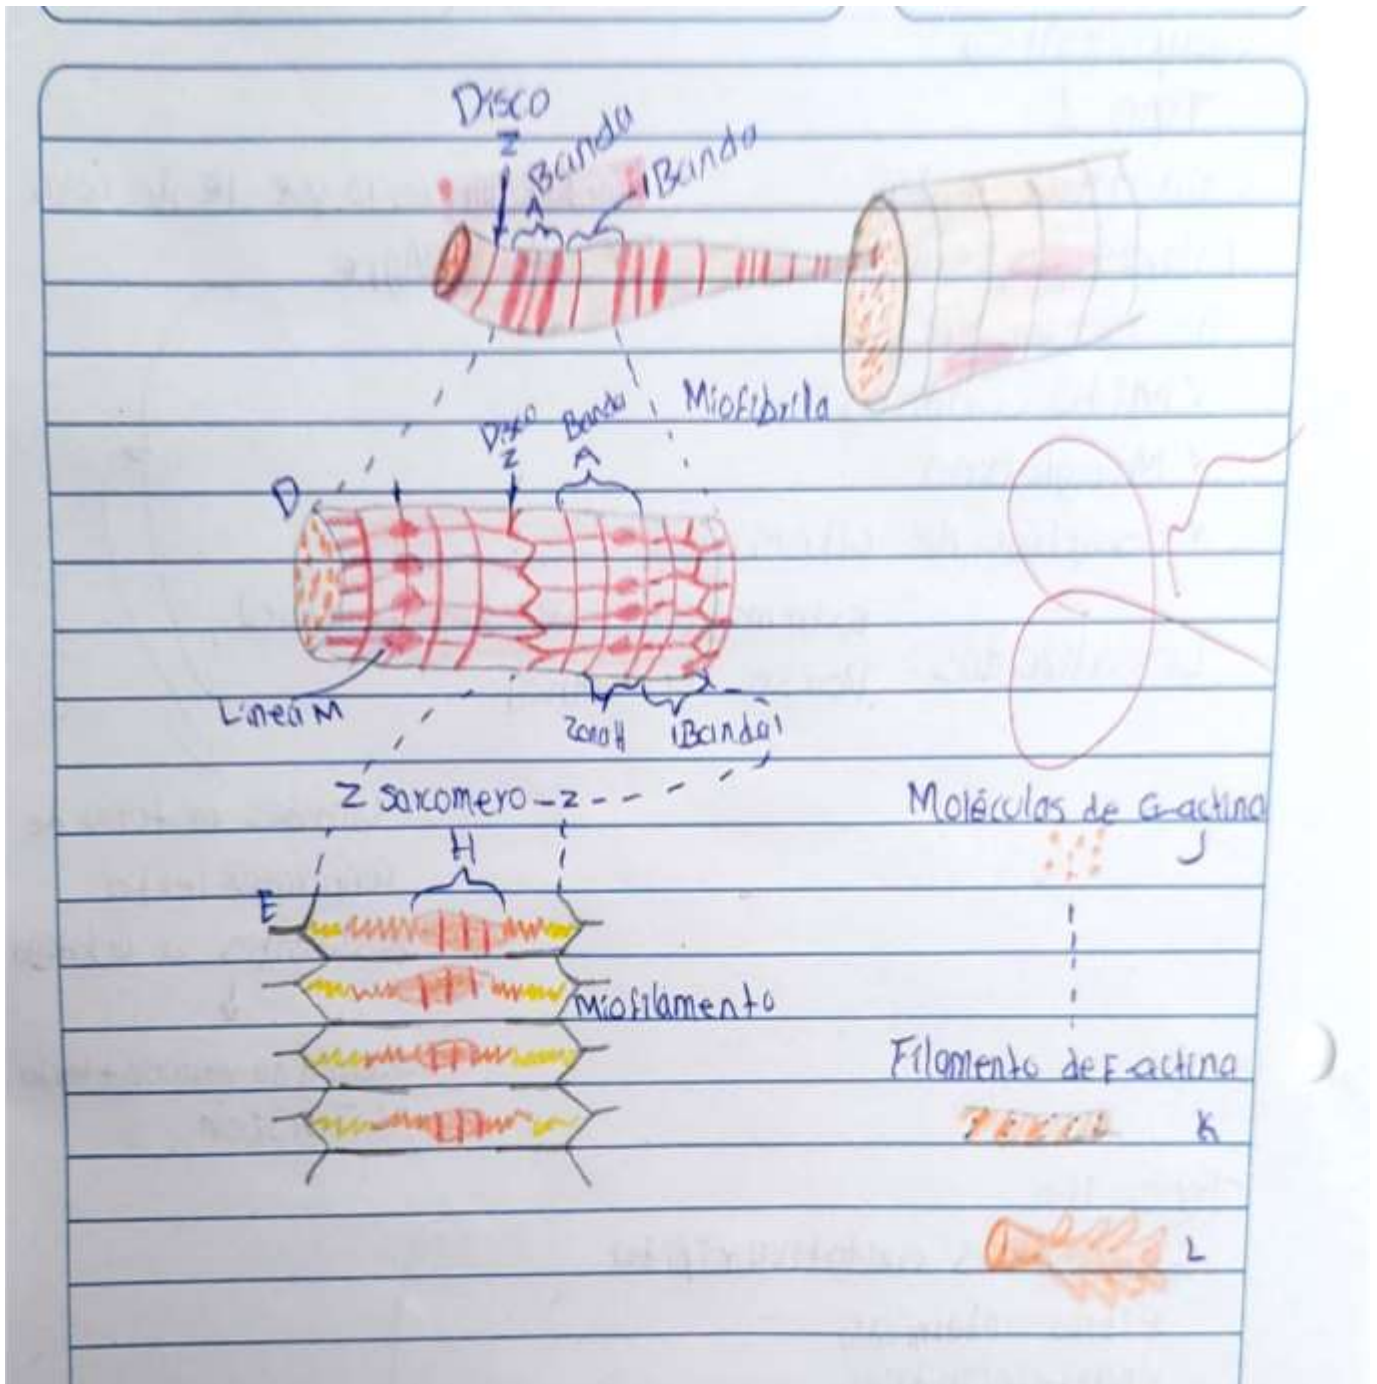 Disco
Z
Banda
A
Banda
I
Miofibrila
D
Disco
Z
Banda
A
Linea M
Zona H
Banda I
Z sarcomero - Z
H
E
miofilamento
Moléculas de G-actina
J
Filamento de F-actina
K
L